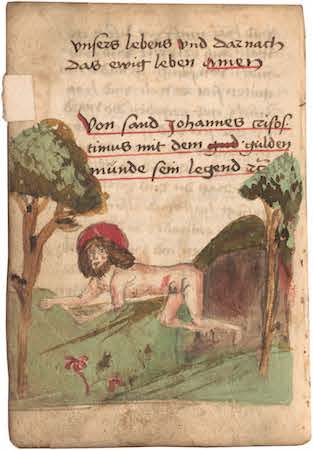 vnsers lebens vnd darnach
das ewig leben Amen
Von sand Johannes crisos
timus mit dem gud gulden
munde sein legend